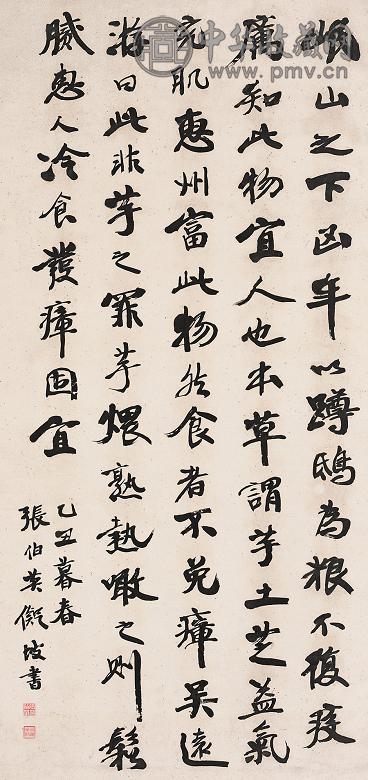 岷山之下凶年以蹲鴟為粮不復疫
癘知此物宜人也本草謂芋土芝益氣
充肌惠州富此物然食者不免瘴吳遠
游曰此非芋之罪芋煨熟熱噉之則鬆
膩惠人冷食發瘴固宜
乙丑暮春
張伯英儗坡書
中华收藏网
www.pmv.cn